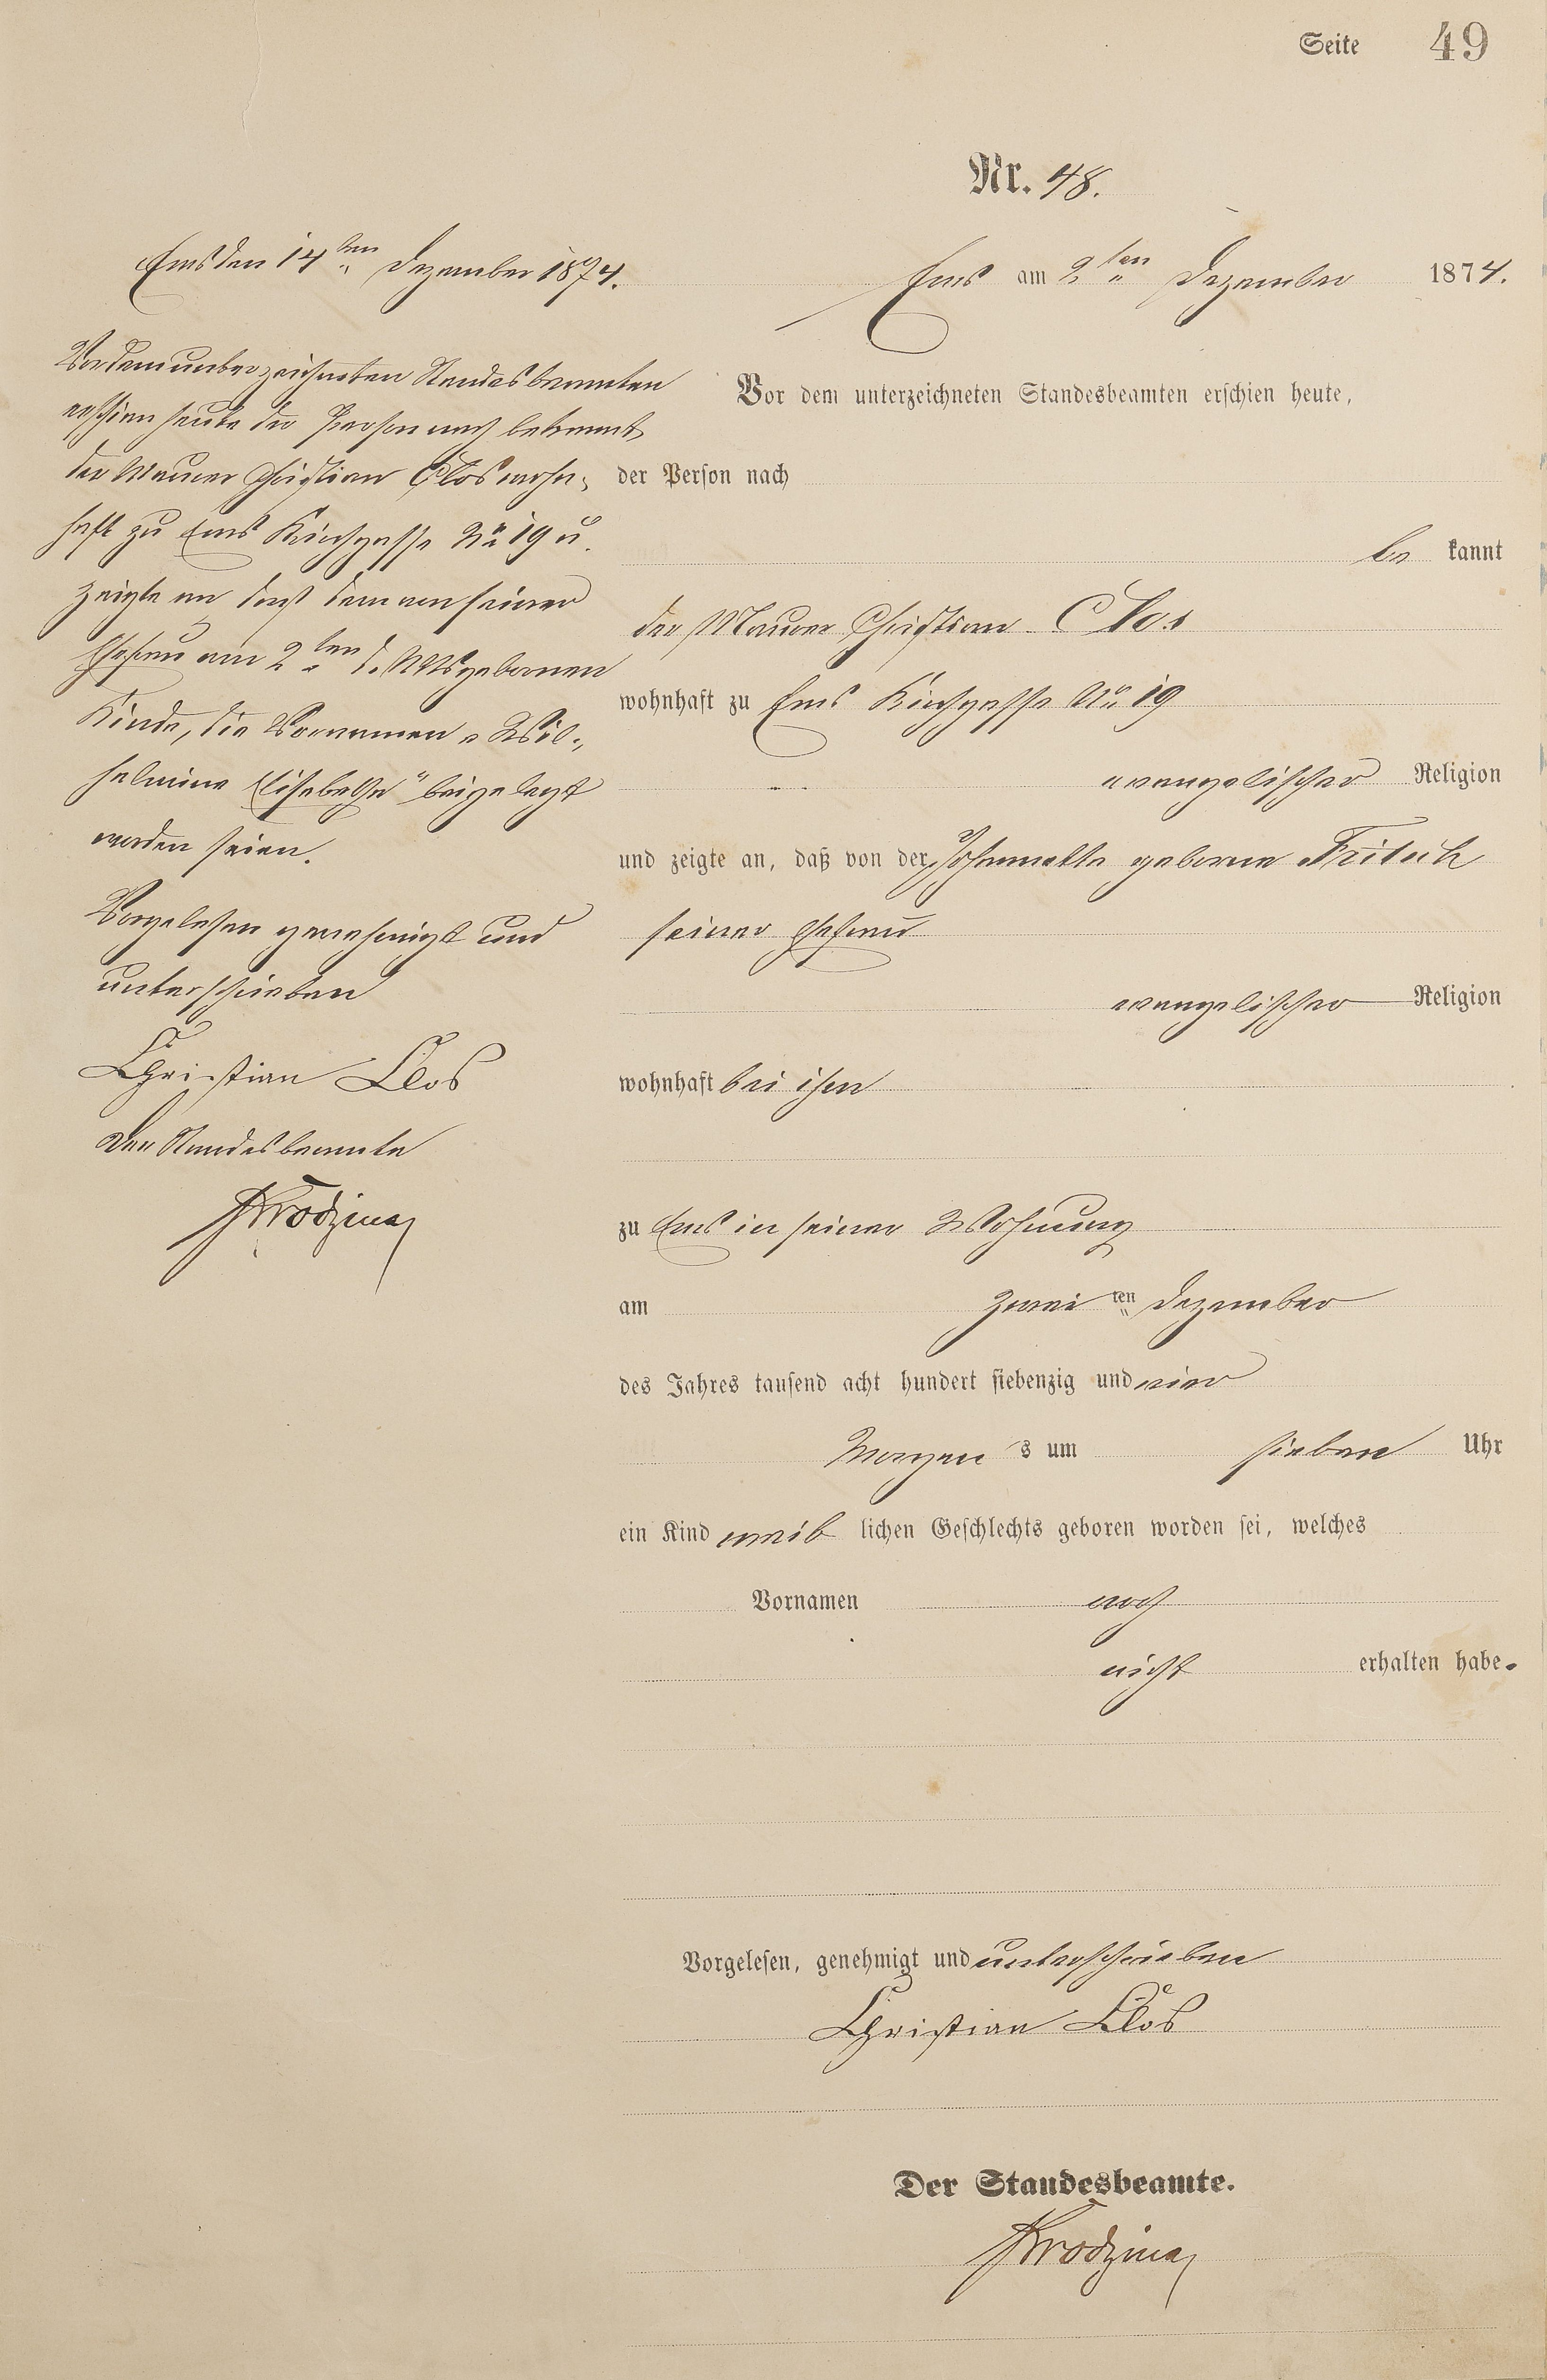 Seite 49
Nr. 48.
Ems am 2ten Dezember 1874.
Vor dem unterzeichneten Standesbeamten erschien heute,
der Person nach
be kannt
der Maurer Christian Clos
wohnhaft zu Ems Kirchgasse No 19
evangelischer Religion
und zeigte an, daß von der Johannette geborne Fritsch
seiner Ehefrau
evangelischer Religion
wohnhaft bei ihm
zu Ems in seiner Wohnung
am zwei ten Dezember
des Jahres tausend acht hundert siebenzig und vier
Morgen s um sieben Uhr
ein Kind weib lichen Geschlechts geboren worden sei, welches
Vornamen noch
nicht erhalten habe.
Vorgelesen, genehmigt und unterschrieben
Christian Clos
Der Standesbeamte.
Ems den 14ten Dezember 1874.
Vor dem unterzeichneten Standesbeamten
erschien heute der Person nach bekannt
der Maurer Christian Clos wohn-
haft zu Ems Kirchgasse No 19 u.
zeigte an daß dem von seiner
Ehefrau am 2ten d. Mts gebornen
Kinde, die Vornamen „Wil-
helmine Elisabethe" beigelegt
worden seien.
Vorgelesen genehmigt und
unterschrieben
Christian Clos
Der Standesbeamte